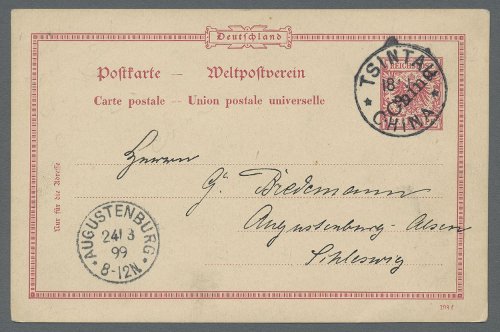 Deutschland
Postkarte — Weltpostverein
Carte postale — Union postale universelle
TSINTAU
18
China
CHINA
Herrn
G. Biedemann
Augustenburg-Alsen
Schleswig
Nur für die Adresse
AUGUSTENBURG
24 3
99
8-12N